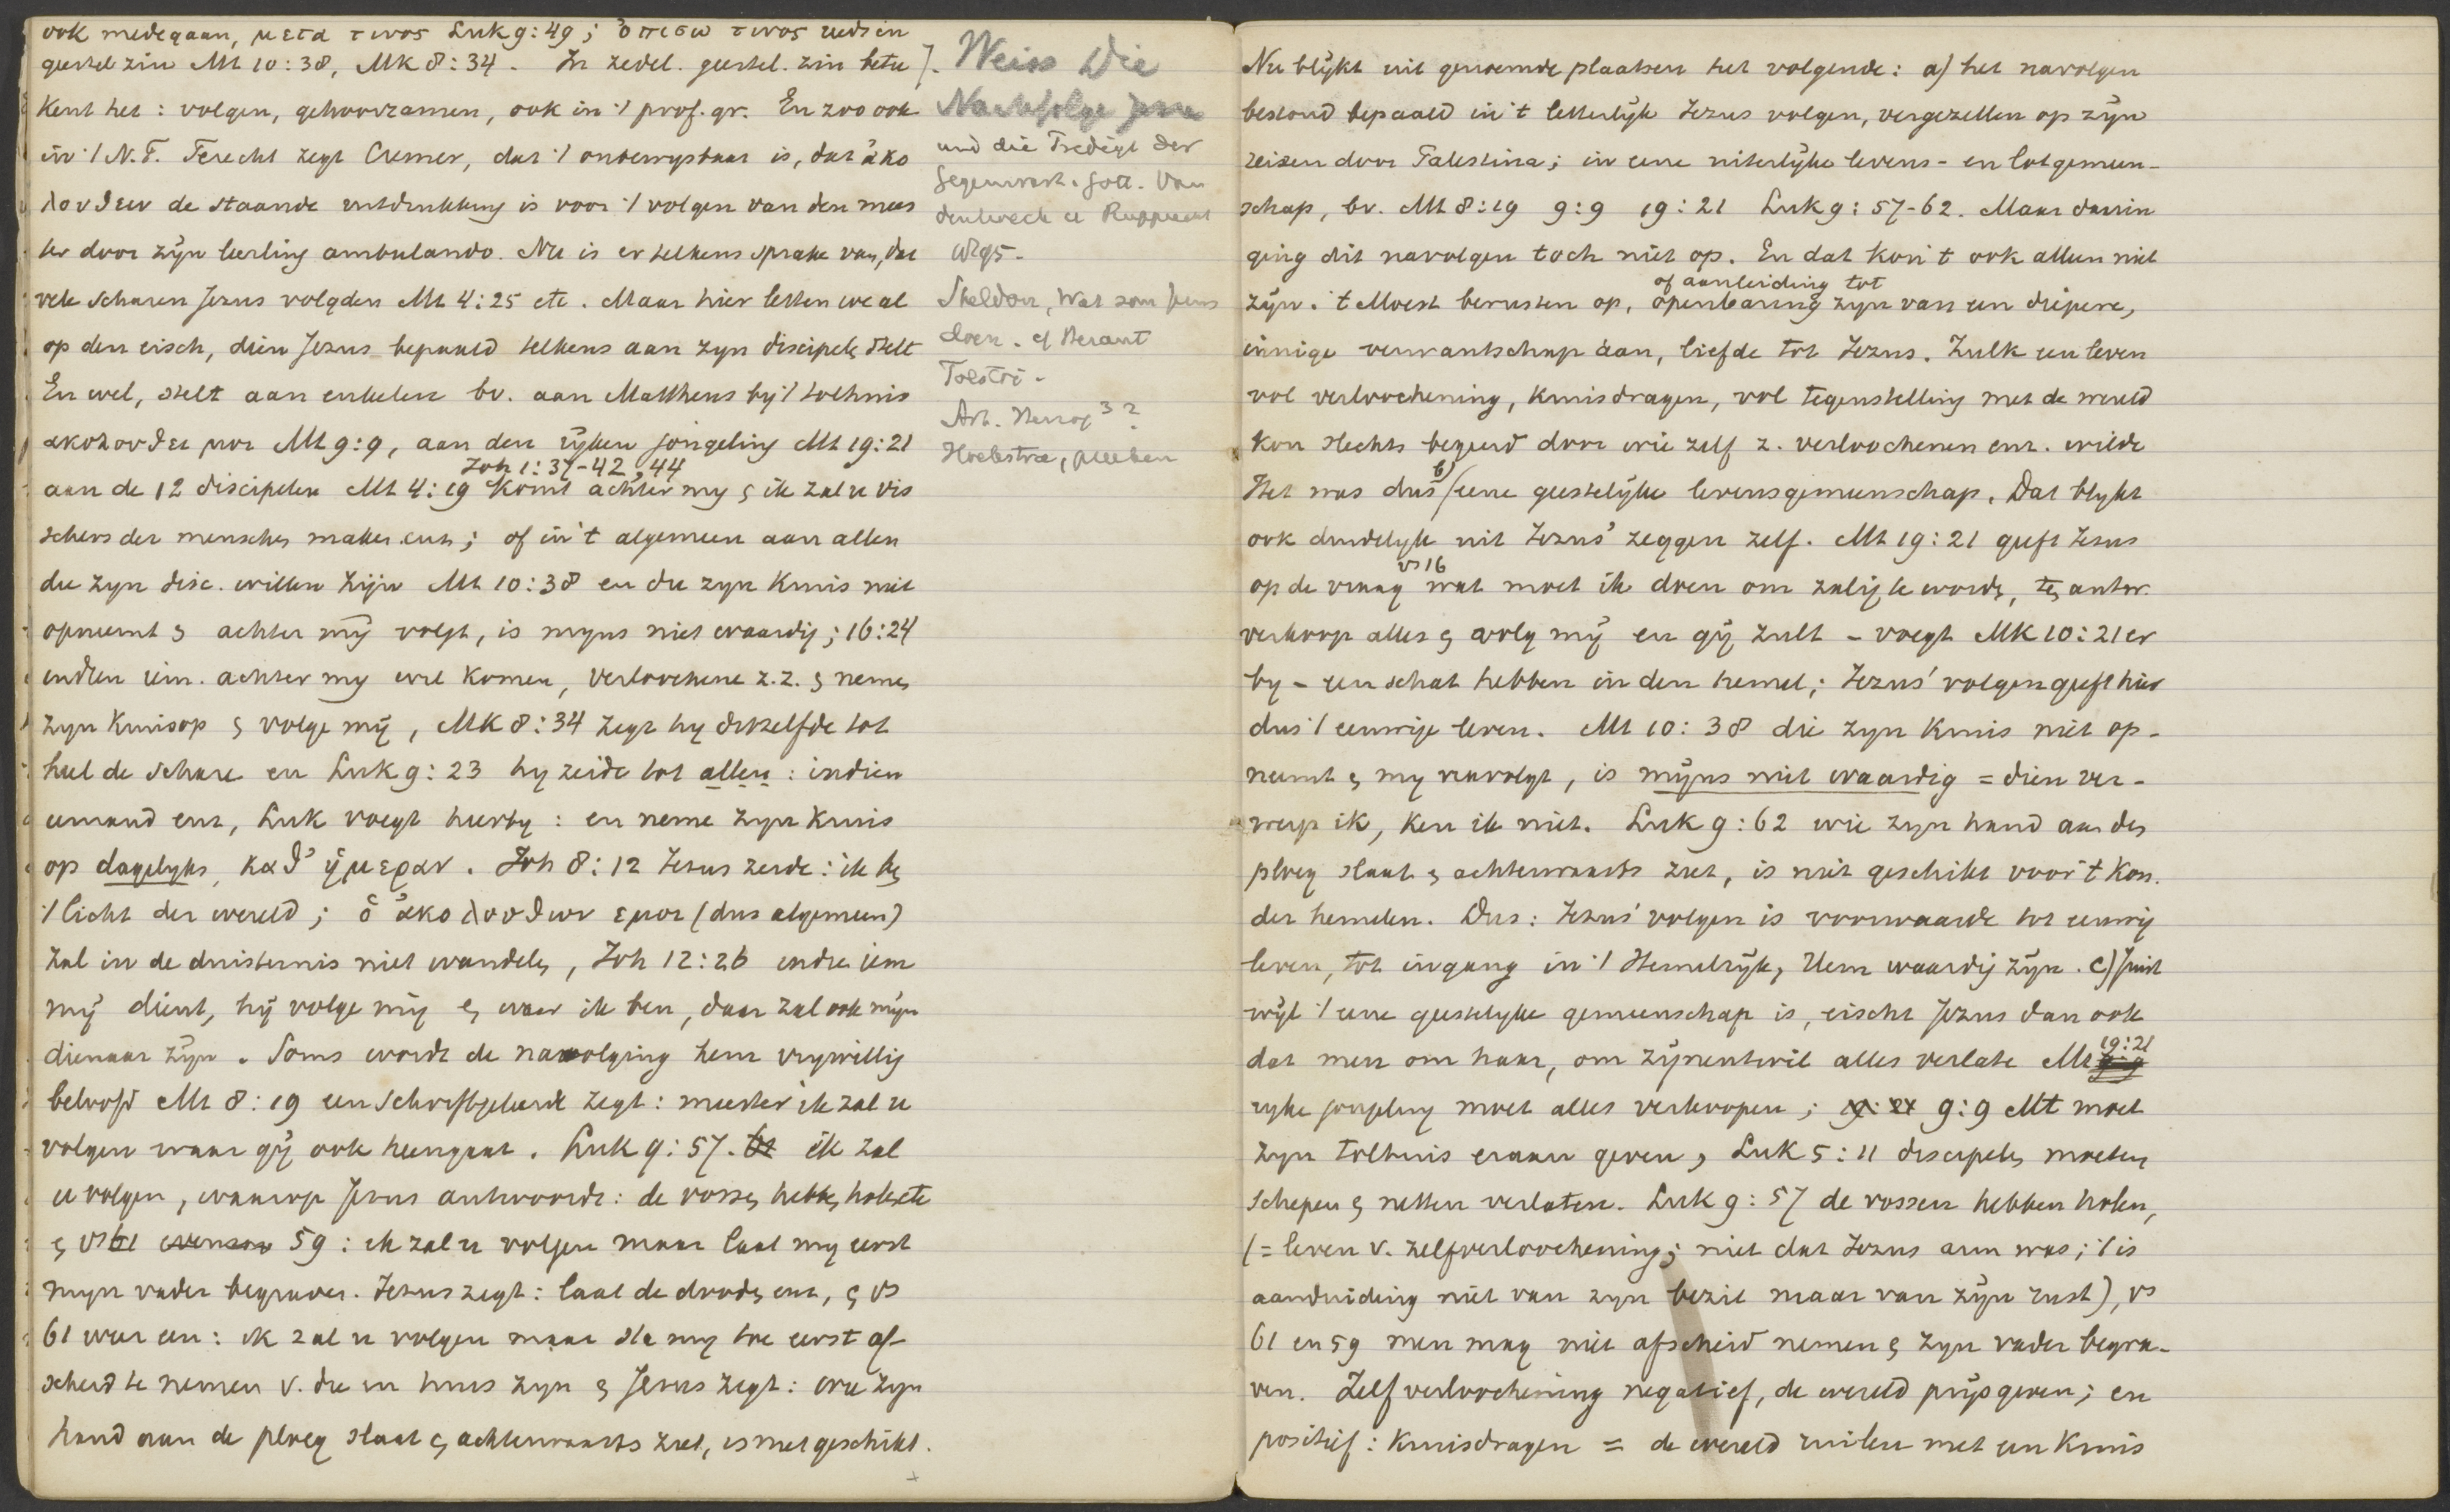 ook medegaan, μετα τινος Luk 9:49; ὀπισω τινος
geestel zin Mt 10:38, Mk 8:34. In zedel. geestel. zin betee
kent het: volgen, gehoorzamen, ook in 't prof. gr. En zoo ook
in 't N.T. Terecht zegt Cremer, dat 't onbewysbaar is, dat ἀκο
λουθειν de staande uitdrukking is voor 't volgen van den mees
ter door zijn leerling ambulando. Nu is er telkens sprake van, dat
vele scharen Jezus volgden Mt 4:25 etc. Maar hier letten we al
op den eisch, dien Jezus bepaald telkens aan zyn discipels stelt
En wel, stelt aan enkelen bv. aan Mattheus bij 't tolhuis
ακολουθει μοι Mt 9:9, aan den rijken jongeling Mt 19:21
Joh 1:37-42, 44
aan de 12 discipelen Mt 4:19 komt achter my en ik zal u vis
schers der menschen maken enz; of in 't algemeen aan allen
die zyn disc. willen zijn Mt 10:38 en die zyn kruis niet
opneemt en achter mij volgt, is myns niet waardig; 16:24
indien iem. achter my wil komen, verloochene z.z. en neme
zyn kruis op en volge mij, Mk 8:34 zegt hy ditzelfde tot
heel de schare en Luk 9:23 hy zeide tot allen: indien
iemand enz, Luk voegt hierby: en neme zyn kruis
op dagelyks, καθ' ἡμεραν. Joh 8:12 Jezus zeide: ik ben
't licht der wereld; ὁ ἀκολουθων εμοι (dus algemeen)
zal in de duisternis niet wandelen, Joh 12:26 indien iem
mij dient, hij volge mij en waar ik ben, daar zal ook mijn
dienaar zijn. Soms wordt de navolging hem vrywillig
beloofd Mt 8:19 een Schriftgeleerde zegt: meester ik zal u
volgen waar gij ook heengaat. Luk 9:57. ik zal
u volgen, waarop Jezus antwoordt: de vossen hebben holen etc
en vs 59: ik zal u volgen maar laat my eerst
myn vader begraven. Jezus zegt: laat de dooden enz, en vs
61 weer een: ik zal u volgen maar sta my toe eerst af
scheid te nemen v. die in huis zyn en Jezus zegt: wie zyn
hand aan de ploeg slaat en achterwaarts ziet, is niet geschikt.
Weiss Die
Nachfolge Jesu
und die Predigt der
Gegenwart. Gött. Van
denhoeck u Rupprecht
1895.
Sheldon, Wat zou Jezus
doen. cf Besant
Tolstoi.
Hoekstra,
Nu blijkt uit genoemde plaatsen het volgende: a) het navolgen
bestond bepaald in 't letterlijk Jezus volgen, vergezellen op zijn
reizen door Palestina; in eene uiterlijke levens- en lotgemeen-
schap, bv. Mt 8:19 9:9 19:21 Luk 9:57-62. Maar daarin
ging dit navolgen toch niet op. En dat kon 't ook alleen niet
of aanleiding tot
zijn. 't Moest berusten op, openbaring zyn van een diepere,
innige verwantschap aan, liefde tot Jezus. Zulk een leven
vol verloochening, kruisdragen, vol tegenstelling met de wereld
kon slechts begeerd door wie zelf z. verloochenen enz. wilde
Het was dus b) eene geestelijke levensgemeenschap. Dat blykt
ook duidelyk uit Jezus' zeggen zelf. Mt 19:21 geeft Jezus
vs 16
op de vraag wat moet ik doen om zalig te worden, ten antw.
verkoop alles en volg mij en gij zult – voegt Mk 10:21 er
by – een schat hebben in den hemel; Jezus' volgen geeft hier
dus 't eeuwige leven. Mt 10:38 die zyn kruis niet op-
neemt en my navolgt, is mijns niet waardig = dien ver-
werp ik, ken ik niet. Luk 9:62 wie zyn hand aan den
ploeg slaat en achterwaarts ziet, is niet geschikt voor 't Kon.
der hemelen. Dus: Jezus' volgen is voorwaarde tot eeuwig
leven, tot ingang in 't Hemelrijk, Hem waardig zijn. c) Juist
wijl 't eene geestelyke gemeenschap is, eischt Jezus dan ook
dat men om haar, om zijnentwil alles verlate Mt 19:21
ryke jongeling moet alles verkoopen; 9:9 Mt moet
zyn tolhuis eraan geven, Luk 5:11 discipelen moeten
schepen en netten verlaten. Luk 9:57 de vossen hebben holen,
(= leven v. zelfverloochening; niet dat Jezus arm was; 't is
aanduiding niet van zyn bezit maar van zijn rust), vs
61 en 59 men mag niet afscheid nemen en zyn vader begra-
ven. Zelfverloochening negatief, de wereld prijsgeven; en
positief: kruisdragen = de wereld ruilen met een kruis